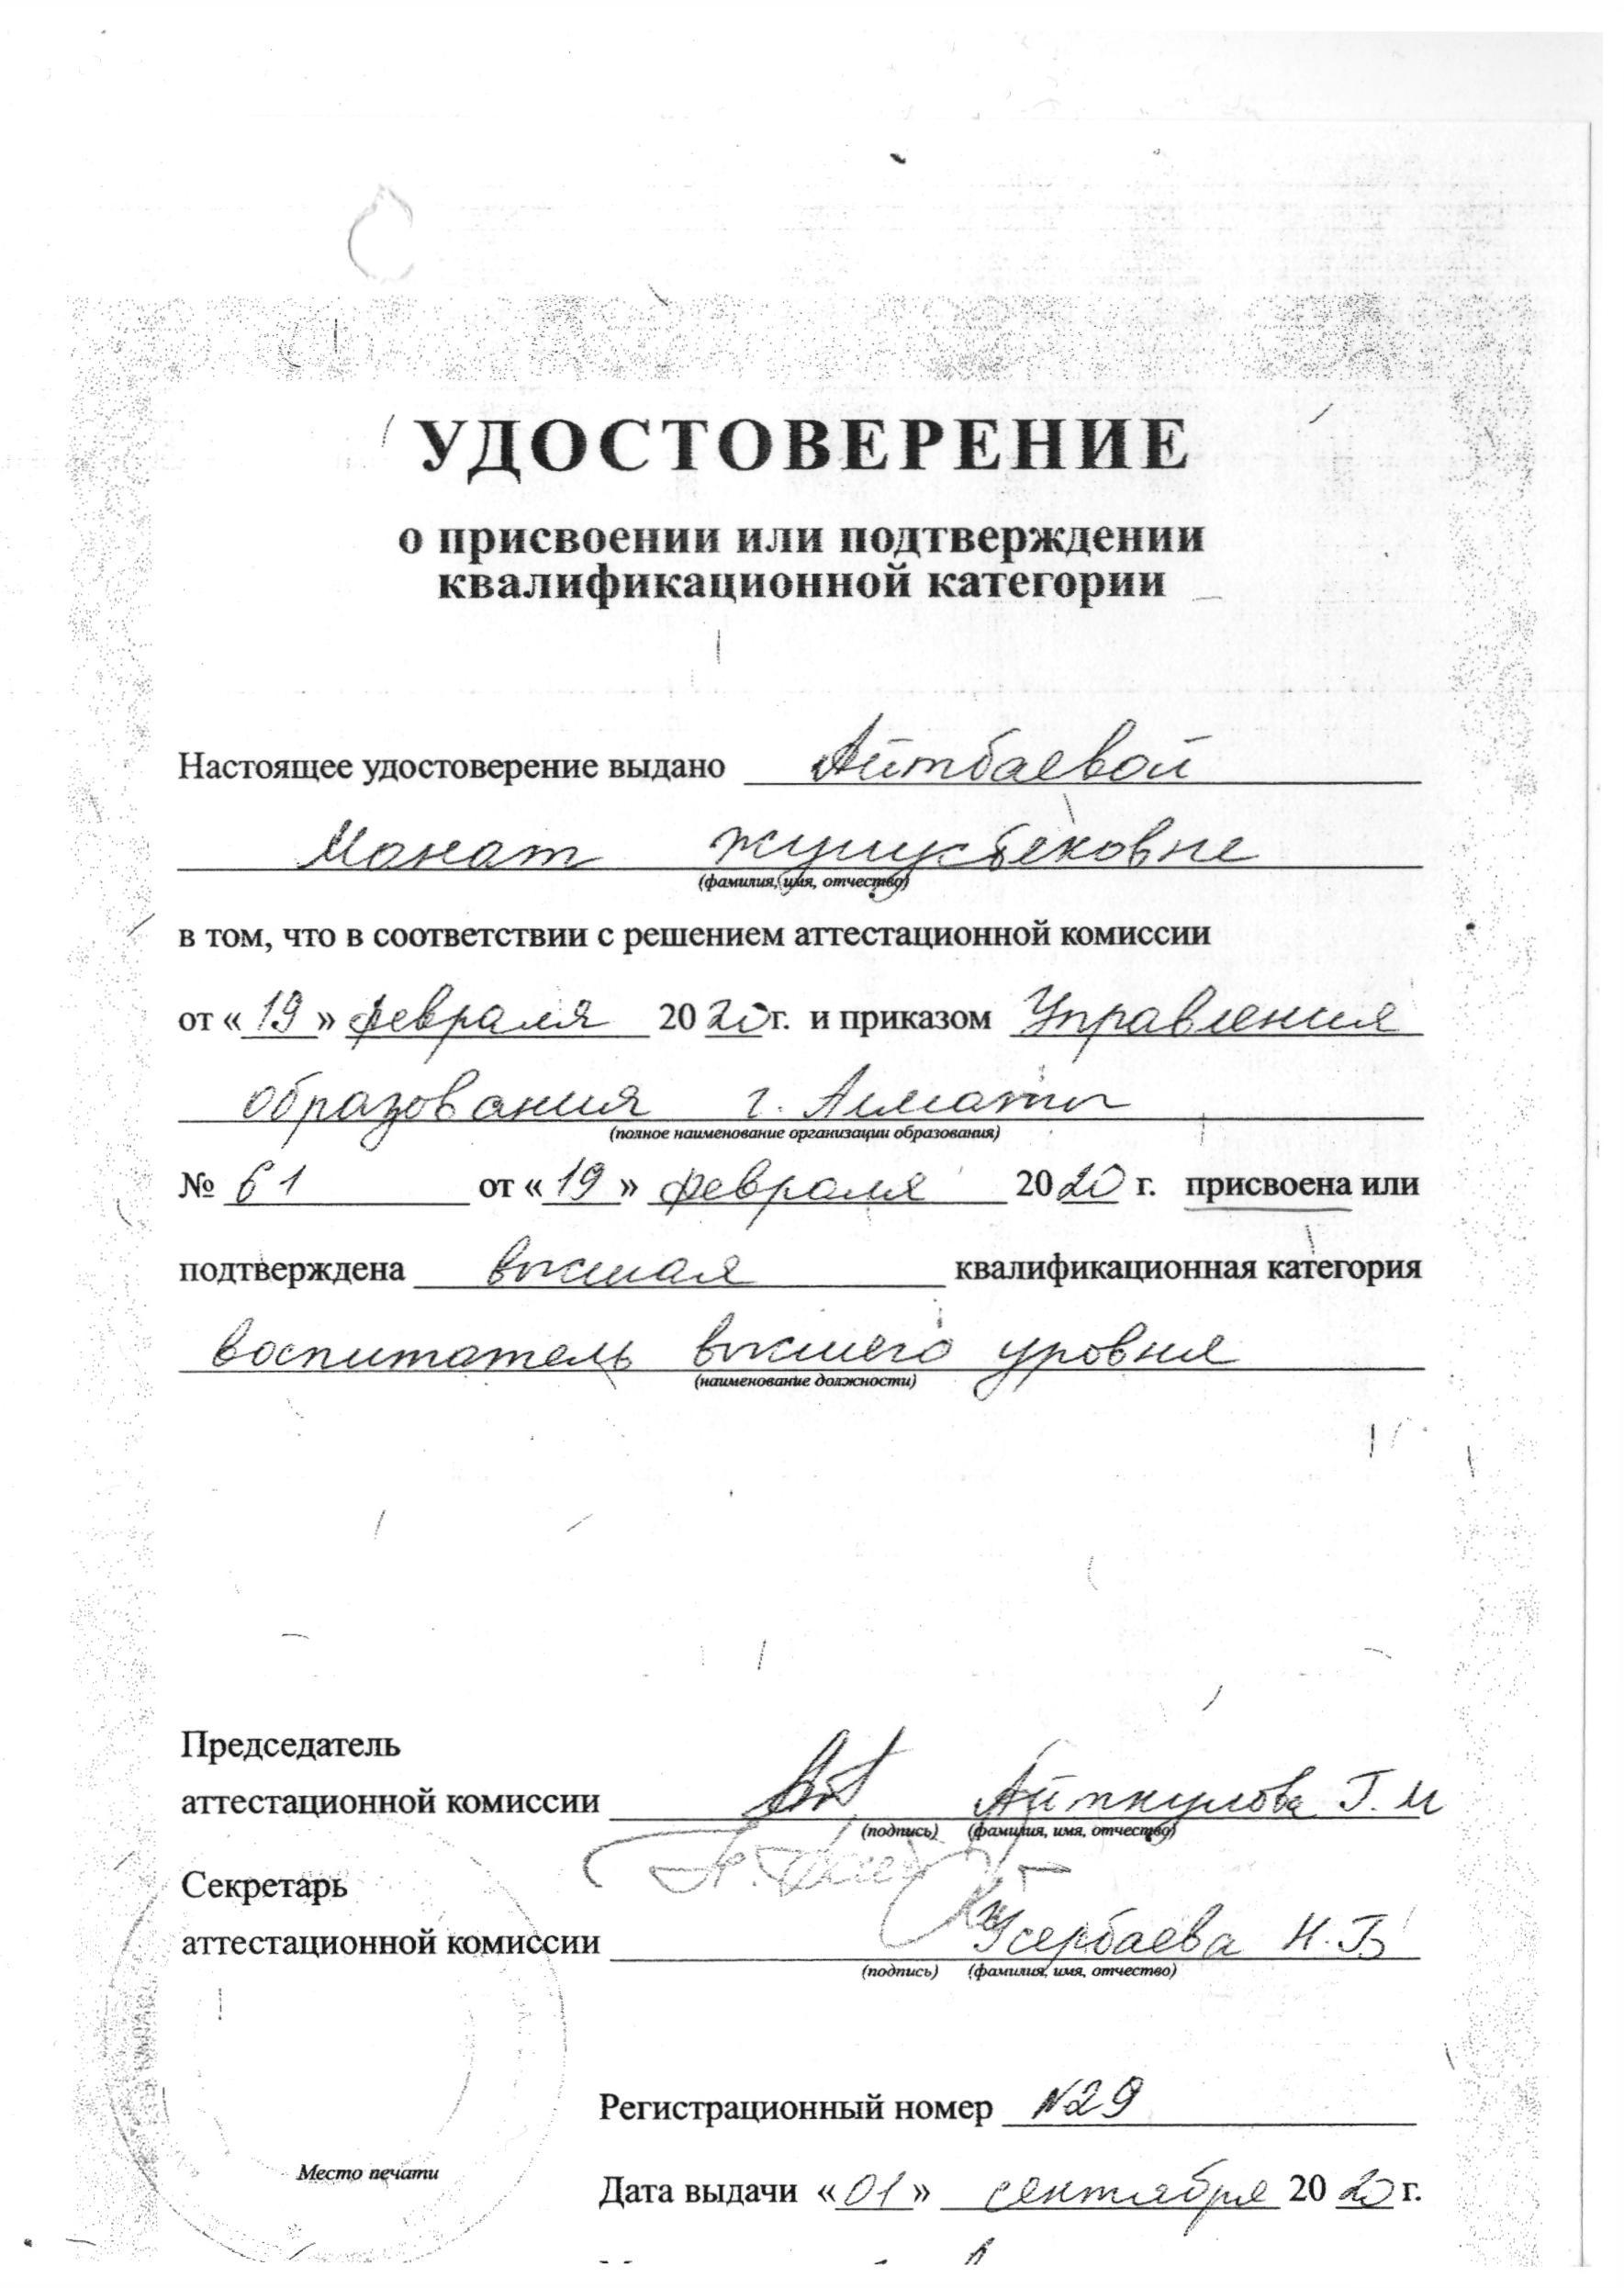 УДОСТОВЕРЕНИЕ
о присвоении или подтверждении
квалификационной категории
Настоящее удостоверение выдано Айтбаевой
Манат Жунусбековне
(фамилия, имя, отчество)
в том, что в соответствии с решением аттестационной комиссии
от «19» февраля 2020 г. и приказом Управления
образования г. Алматы
(полное наименование организации образования)
№ 61 от «19» февраля 2020 г. присвоена или
подтверждена высшая квалификационная категория
воспитатель высшего уровня
(наименование должности)
Председатель
аттестационной комиссии Айткулова Г. И
(подпись) (фамилия, имя, отчество)
Секретарь
аттестационной комиссии Усербаева Н. Б
(подпись) (фамилия, имя, отчество)
Регистрационный номер №29
Место печати
Дата выдачи «01» сентября 2020 г.